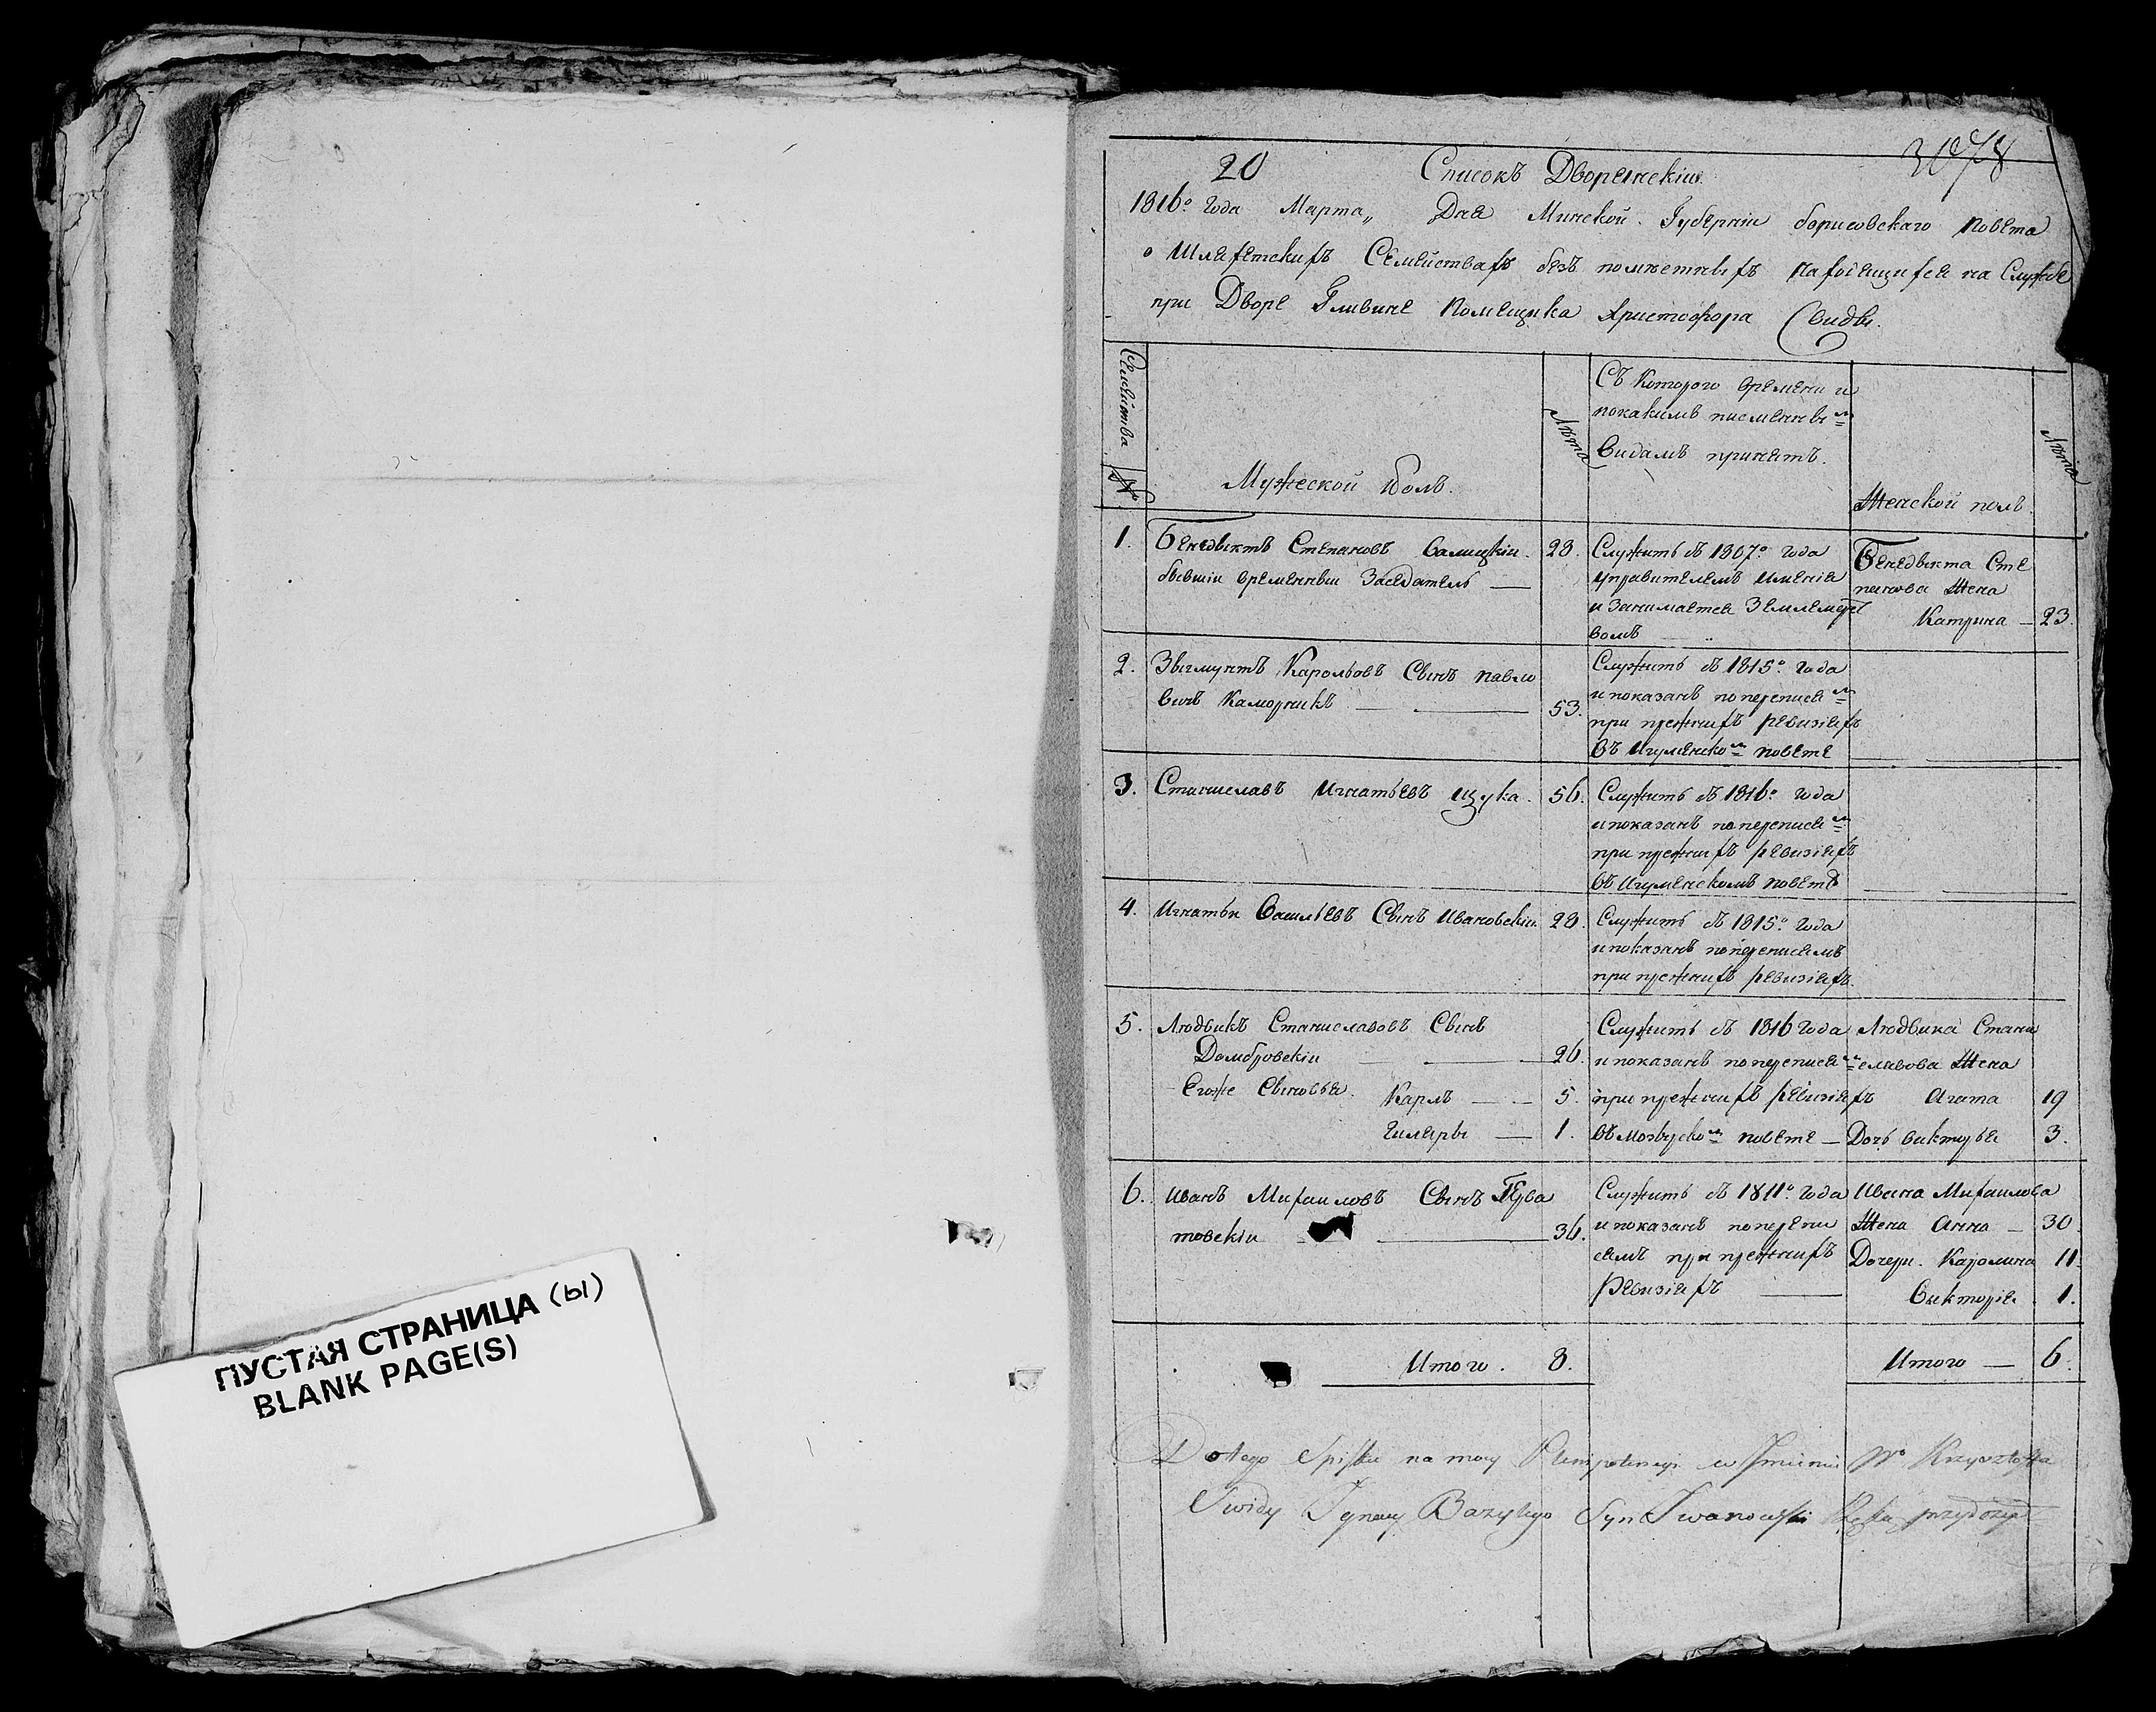 ПУСТАЯ СТРАНИЦА (Ы)
BLANK PAGE(S)
20
Списокъ Дворянскіи
1816º Года Марта„ Дня Минской Губерніи борисовскаго Повета
о Шляхетскихъ Семействахъ безъ поместныхъ Находящихся на Службе
при Дворе Гливине Помещика Христофора Свиды.
Семейства
№
Мужеской Полъ.
Лета
Съ Которого времени и
покакимъ писменны м
видамъ принятъ.
Женской полъ.
Лета
1. Бенедыктъ Степановъ Валицкіи. 28.
бывшіи временныи Заседатель —
Служитъ съ 1807º года
управителемъ имения
и Занимается Землемерст
вомъ
Бенедыкта Сте
панова Жена
Катрина — 23.
2. Зыгмунтъ Карольовъ Сынъ Павло
вичъ Каморникъ — 53.
Служитъ съ 1815º Года
и показанъ по переписям
при прежнихъ ревизіяхъ
въ Игуменском повете
3. Станиславъ Игнатьевъ Щука. 56.
Служитъ съ 1816º года
и показанъ по переписям
при прежнихъ ревизіяхъ
въ Игуменскомъ повете
4. Игнатьи Васильевъ Сынъ Ивановскіи. 28.
Служитъ съ 1815º Года
и показанъ по переписямъ
при прежнихъ ревизіяхъ.
5. Людвикъ Станиславовъ Сынъ
Домбровскіи — 26.
Егоже Сыновья. Карлъ — 5.
Гиляры — 1.
Служитъ съ 1816 года
и показанъ по переписям
при прежнихъ ревизіяхъ
въ Мозырском повете —
Людвика Стани
славова Жена
Агата 19
Дочь Викторья 3.
6. Иванъ Михаиловъ Сынъ
товскіи — 36.
Служитъ съ 1811º года
и показанъ по перепи
сямъ при прежнихъ
Ревизіяхъ —
Ивана Михаилова
Жена Анна — 30
Дочери. Каролина 11.
Викторія. 1.
Итого. 8.
Итого — 6.
Do tego Spisku na mocy Plenipotencyi w Imieniu Wº Krzysztofa
Swidy Ignacy Bazylego Syn Iwanowski Rękę